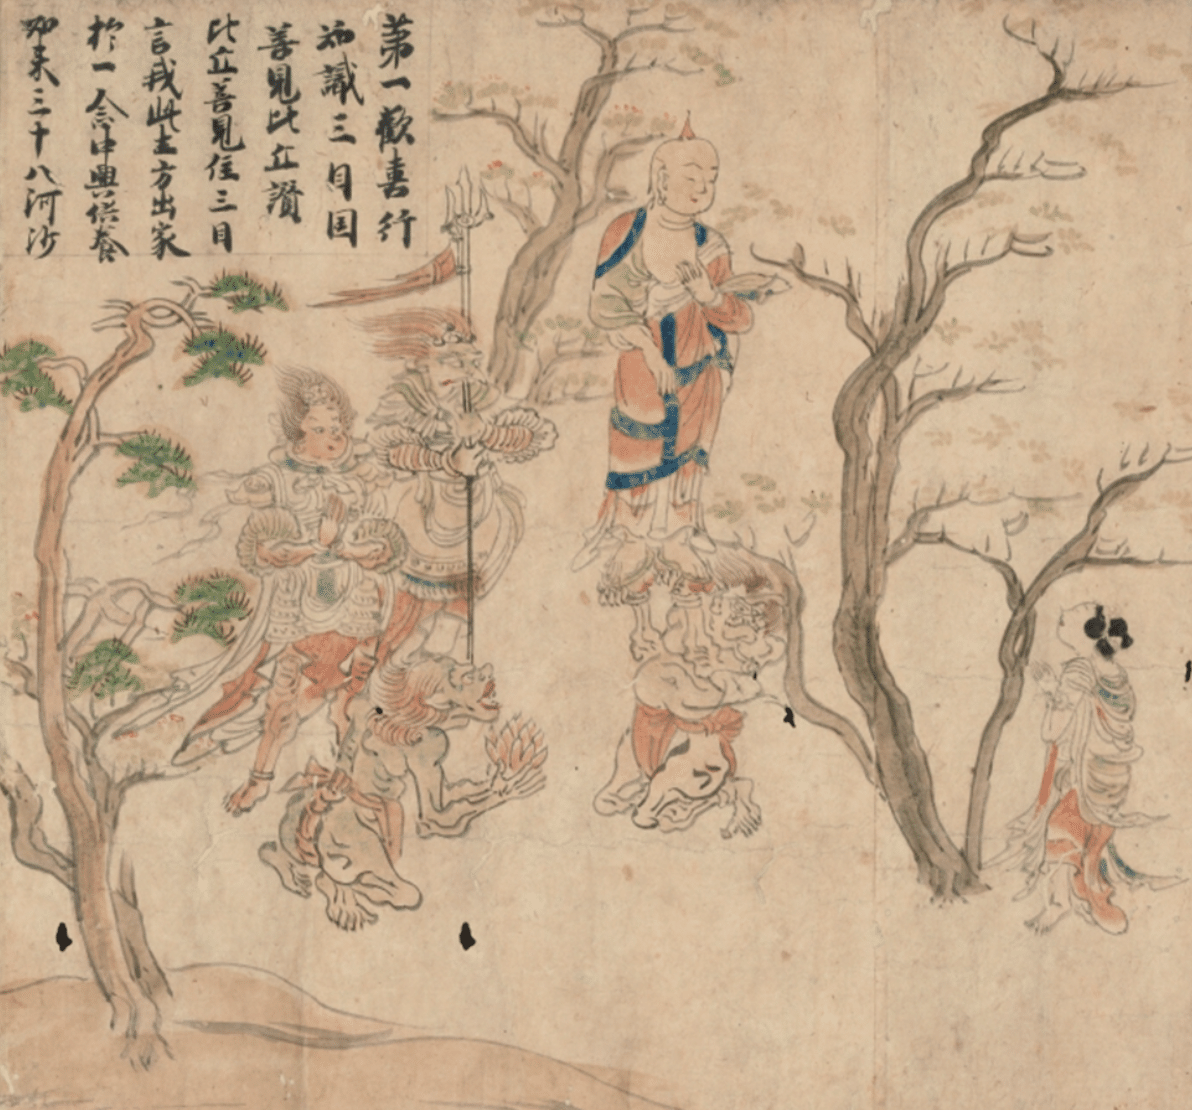 第一歡喜行
識三目国
善見比丘讃
比丘善見住三目
言我此生方出家
於一念中興供養
如来三十八河沙